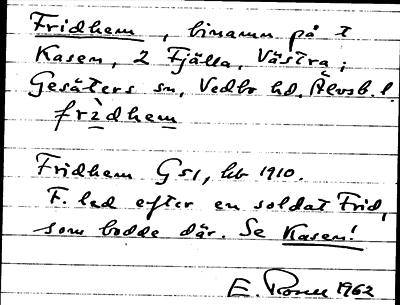 Fridhem, binamn på t
Kasen, 2 Fjälla, Västra;
Gesäters sn, Vedbo hd, Älvsb. l.
frìdhem
Fridhem Gs1, hb 1910.
F. led efter en soldat Frid,
som bodde där. Se Kasen!
E 1962